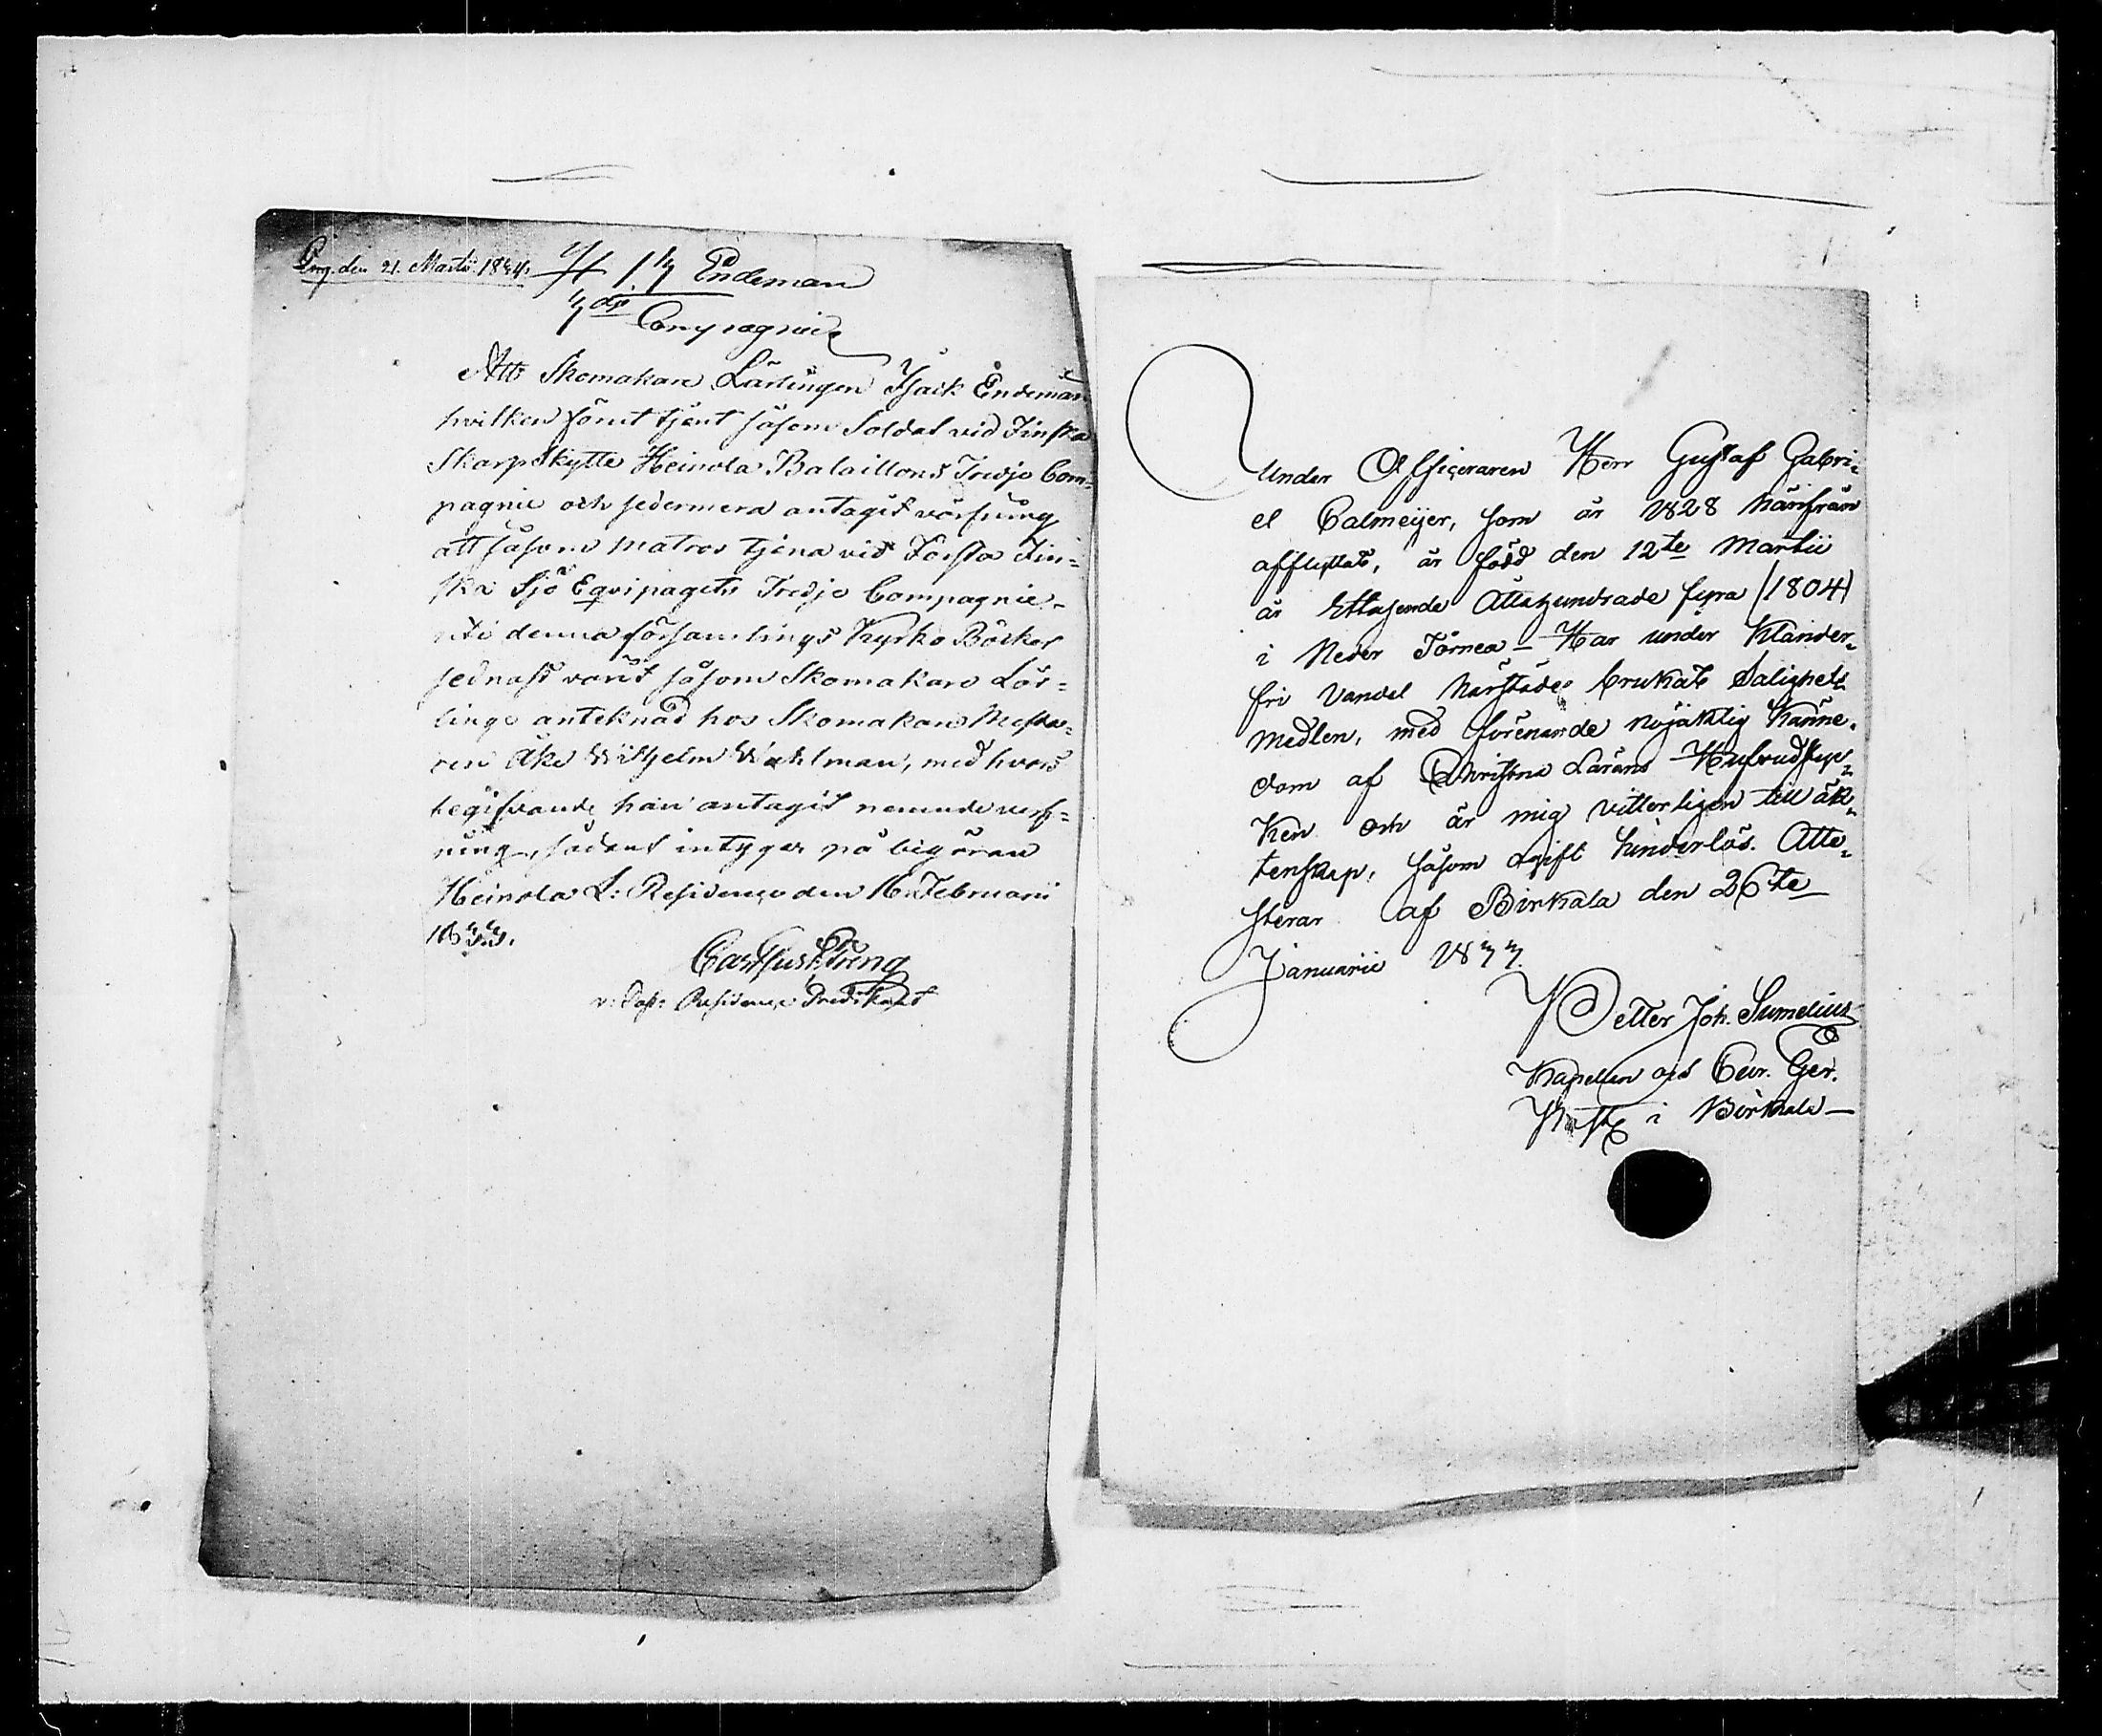 Ing. den 21. Martii 1834.
Endeman
3die Compagnie
Att Skomakare Lärlingen Isaik Endeman
hvilken förut tjent såsom Soldat vid Finska
Skarpskytte Heinola Bataillons Tredje Com-
pagnie och sedermera antagit värfning
att såsom Matros tjena vid Första Fin-
ska Sjö Eqvipagets Tredje Compagnie
uti denna församlings Kyrko Böcker
sednast varit såsom Skomakare Lär-
linge anteknad hos Skomakare Mesta-
ren Åke Wilhelm Wahlman, med hvars
begifvande han antagit nemnde verf-
ning, sådant intygar på begäran
Heinola L: Residence den 16 Februarii
1833.
Carl Gust
v: Past: Residence Predikant
Under Officeraren Herr Gustaf Gabri-
el Calmeijer, som år 1828 härifrån
afflyttat, är född den 12te Martii
år Ettusende Åttahundrade fyra (1804)
i Neder Torneå - Har under Klander-
fri Vandel härstädes brukat Salighets
medlen, med förenande nöjaktig Känne-
dom af Christna Lärans Hufvudstyc-
ken och är mig vitterligen till äk-
tenskap, såsom ogift hinderlös. Atte-
sterar af Birkala den 26te
Januarii 1833.
Petter Joh. Sumelius
Kapellan och Cur. Ger.
i Birkala